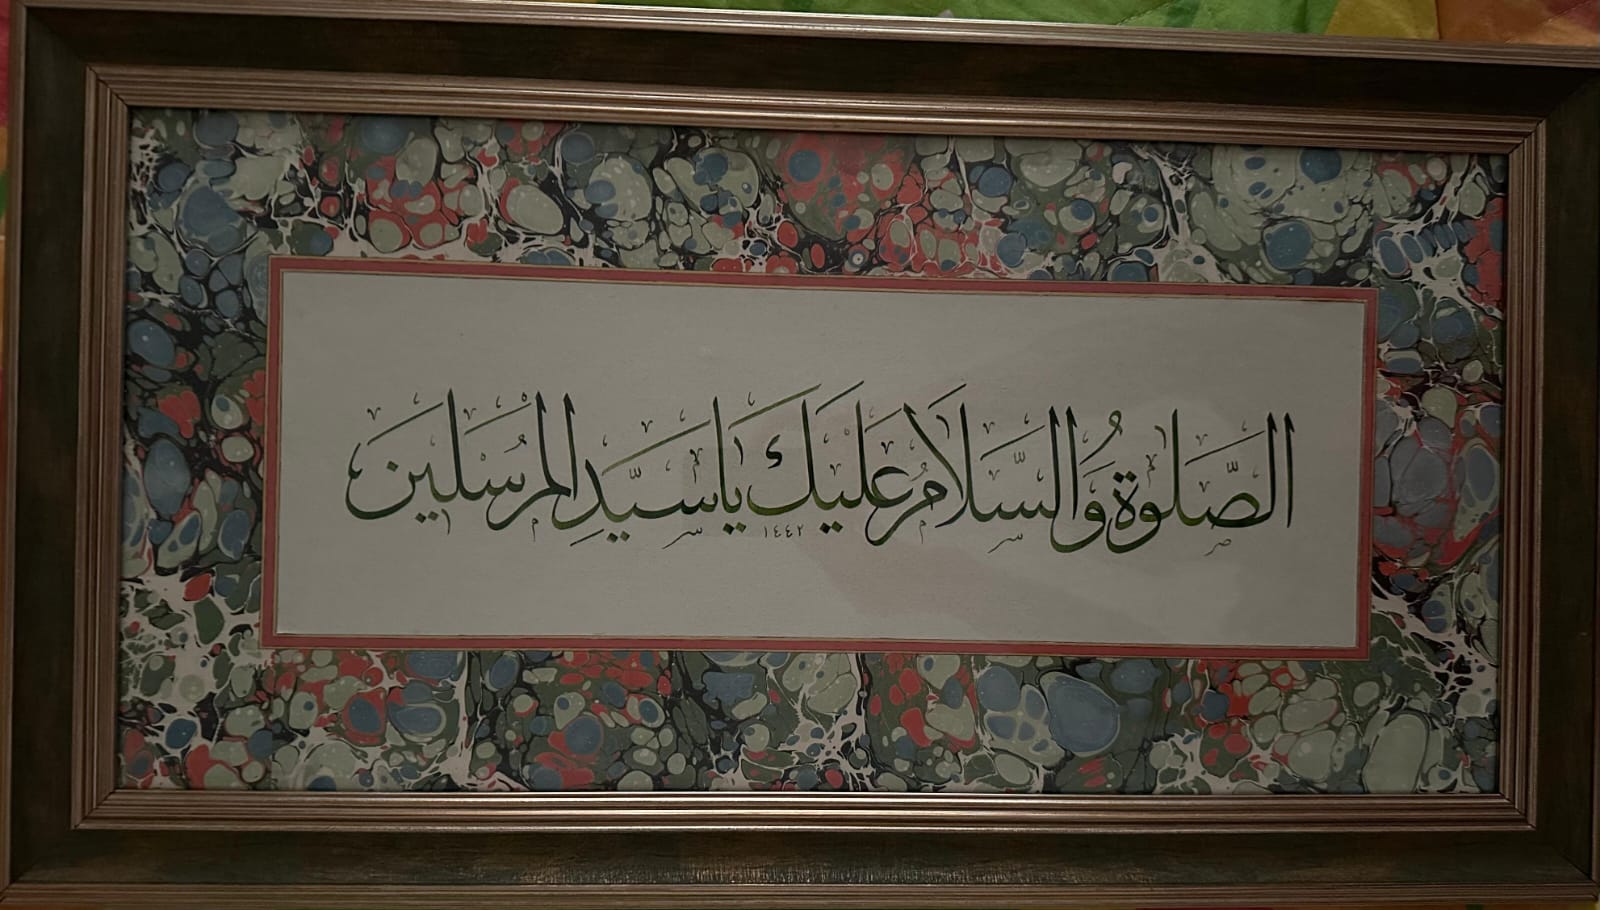 الصَّلٰوةُ وَالسَّلَامُ عَلَيْكَ يَا سَيِّدَ الْمُرْسَلِينَ
١٤٤٢